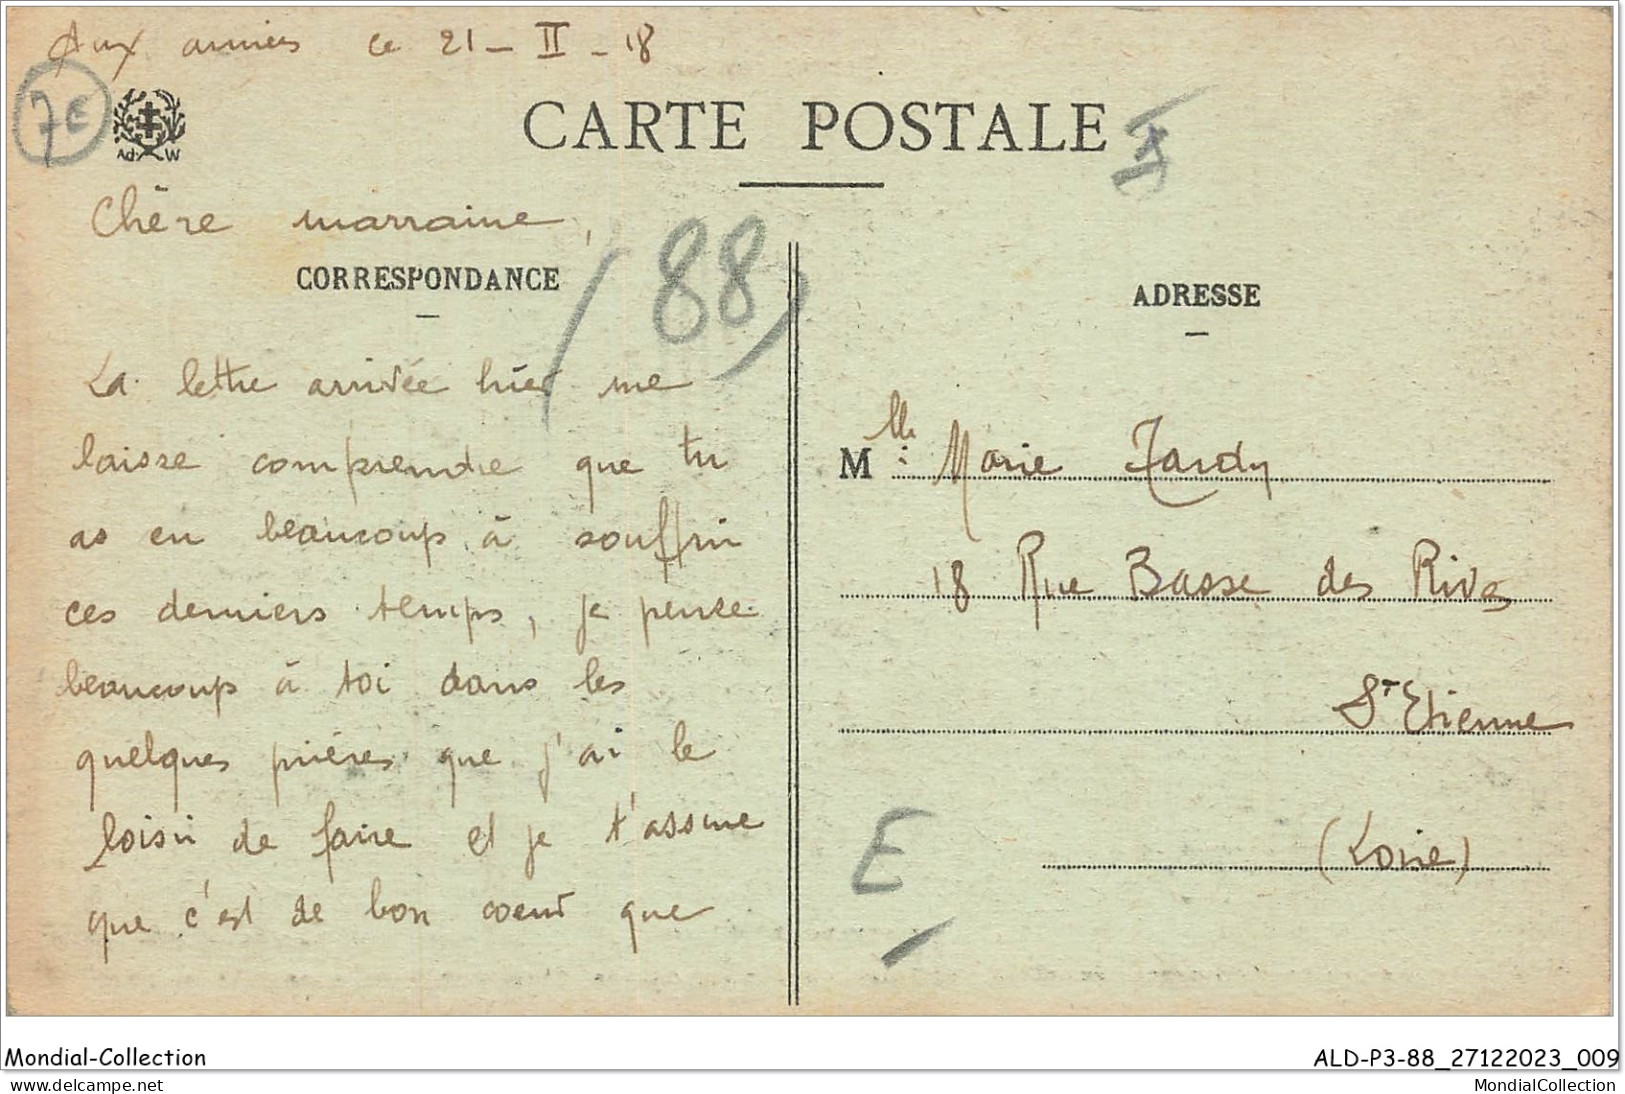 Aux armées ce 21 - II - 18
7E
Ad W
CARTE POSTALE
Chère marraine,
CORRESPONDANCE
(88)
La lettre arrivée hier me
laisse comprendre que tu
as eu beaucoup à souffrir
ces derniers temps, je pense
beaucoup à toi dans les
quelques prières que j'ai le
loisir de faire et je t'assure
que c'est de bon coeur que
ADRESSE
Mlle Marie Tardy
18 Rue Basse des Rives
St Etienne
(Loire)
E
Mondial-Collection
ALD-P3-88_27122023_009
MondialCollection